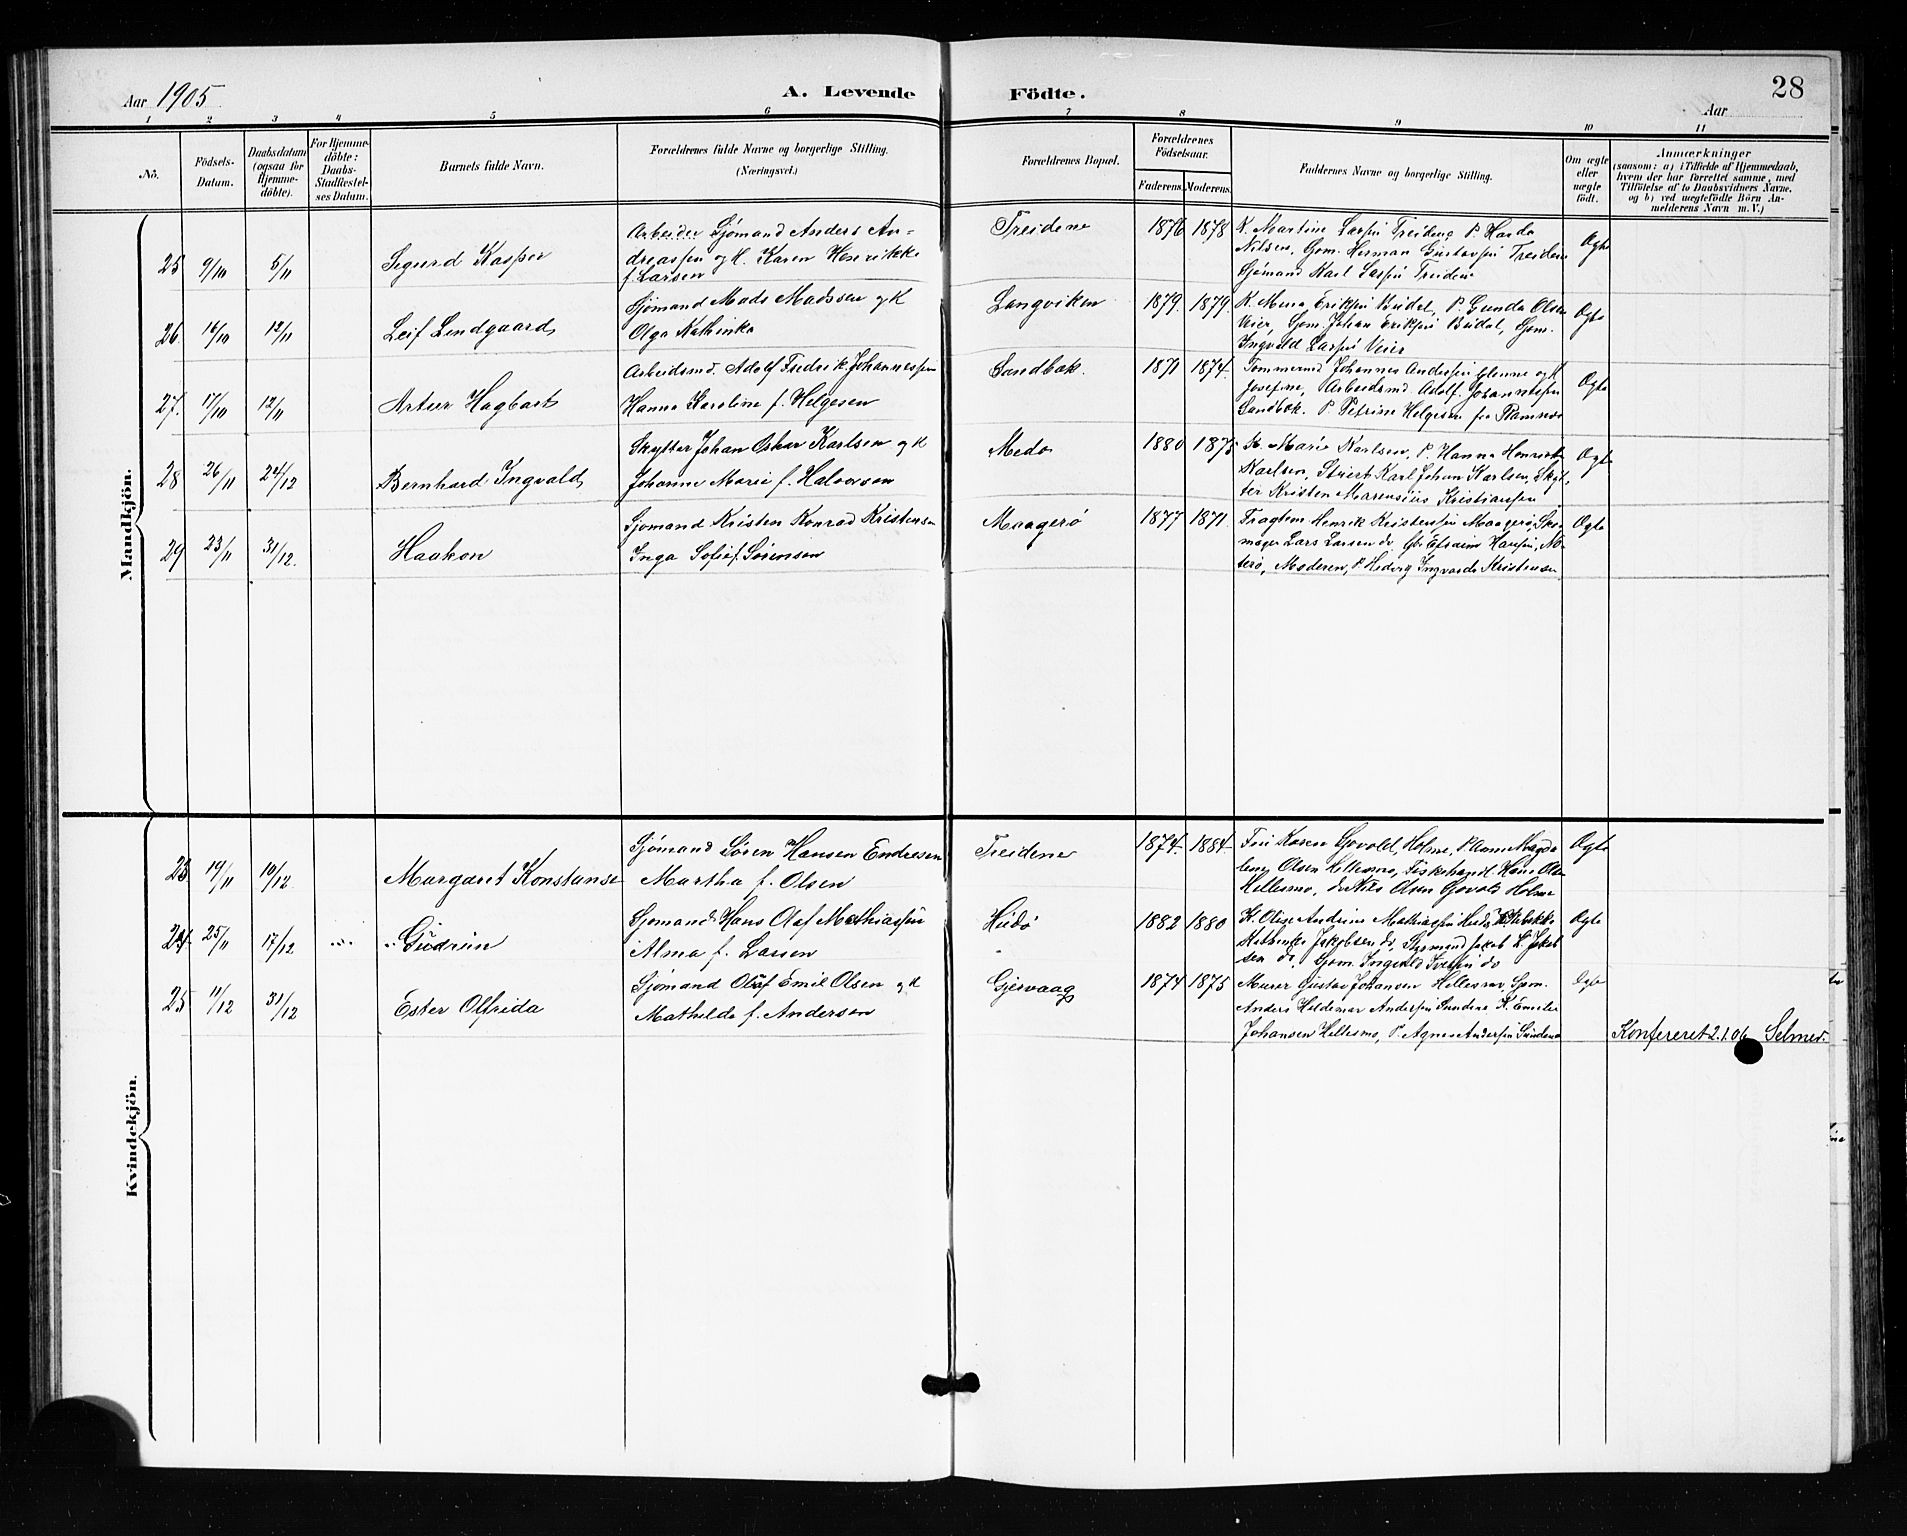 Aar 1905
A. Levende Födte.
Aar
28
1 2 3 4 5 6 7 8 9 10 11
No.
Födsels-Datum.
Daabsdatum (ogsaa for Hjemme-döbte).
For Hjemme-döbte: Daabs-Stadfæstel-ses Datum.
Barnets fulde Navn.
Forældrenes fulde Navne og borgerlige Stilling.
(Næringsvei.)
Forældrenes Bopæl.
Forældrenes Födselsaar.
Faderens. Moderens.
Faddernes Navne og borgerlige Stilling.
Om ægte eller uægte födt.
Anmærkninger
(saasom: a) i Tilfælde af Hjemmedaab, hvem der har forrettet samme, med Tilföielse af to Daabsvidners Navne. og b) ved uægtefödte Börn An-melderens Navn m. V.)
Mandkjön.
25 9/10 5/11 Sigurd Kasper
Arbeider Sjømand Anders An-
dreassen og H. Karen Henrikke
f. Larsen
Treidene 1876 1878
K. Martine Larsen Treidene P. Harda
Nilsen, Gjm. Herman Gustavsen Treidene
Sjømand Karl Larsen Treidene
Ægte
26 16/10 12/11 Leif Lindgaard
Sjømand Mads Madssen og H
Olga Kathinka
Langviken 1879. 1879.
K. Mina Eriksen Budal, P. Gunda Olsen
Veier, Sjøm. Johan Eriksen Budal, Gjm.
Ingvald Larsen Veier
Ægte
27. 17/10 12/11 Artur Hagbart
Arbeidsmd. Adolf Fredrik Johannessen
Hanna Karoline f. Helgesen
Sandbæk. 1871 1874.
Tømmermd Johannes Andersen Glenne og H
Josefine, Arbeidsmd. Adolf Johannessen
Sandbæk. P. Petrine Helgesen fra Ramnæs
Ægte
28 26/11 24/12 Bernhard Ingvald
Skytter Johan Oskar Karlsen og H
Johanne Marie f. Halvorsen
Medø 1880 1875
K. Marie Karlsen, P. Hanna Henrikke
Karlsen, Stuert Karl Johan Karlsen, Skyt-
ter Kristen Marensius Kristiansen
Ægte
29 23/11 31/12. Haakon
Sjømand Kristen Konrad Kristensen
Inga Sofie f. Sørensen
Maagerø 1877 1871.
Fragtem Henrik Kristensen Maagerø, Sko-
mager Lars Larsen do. Efraim Hansen, Nø-
terø, Moderen, P. Hedvig Ingvarda Kristensen
Ægte
Kvindekjön.
23 19/11 10/12 Margaret Konstanse
Sjømand Søren Hansen Endresen
Martha f. Olsen
Treidene 1874. 1884.
Fru Karen Govald, Holme, P. Anne Magda
lene Olsen Hellesmo, Fiskehandl. Hans Olsen
Hellesmo, do Nils Olsen Holme
Ægte
24 25/11 17/12 Gudrun
Sjømand Hans Olaf Mathiassen
Alma f. Larsen
Huidø 1882 1880
K. Olise Andrine Mathiassen
Kathinka Jakobsen do, Sjømand Jakob L. Jakob
sen do, Sjøm. Ingvald Iversen do
Ægte
25 11/12 31/12 Ester Olfrida
Sjømand Olaf Emil Olsen og H
Mathilde f. Andersen
Gjervaag 1874 1875
Murer Gustav Johansen Hellesmo, Sjøm.
Anders Hildemar Andersen Sundene K. Emilie
Johansen Hellesmo, P. Agnes Andersen Sundene
Ægte
Konfereret 2.1.06 Selmer.